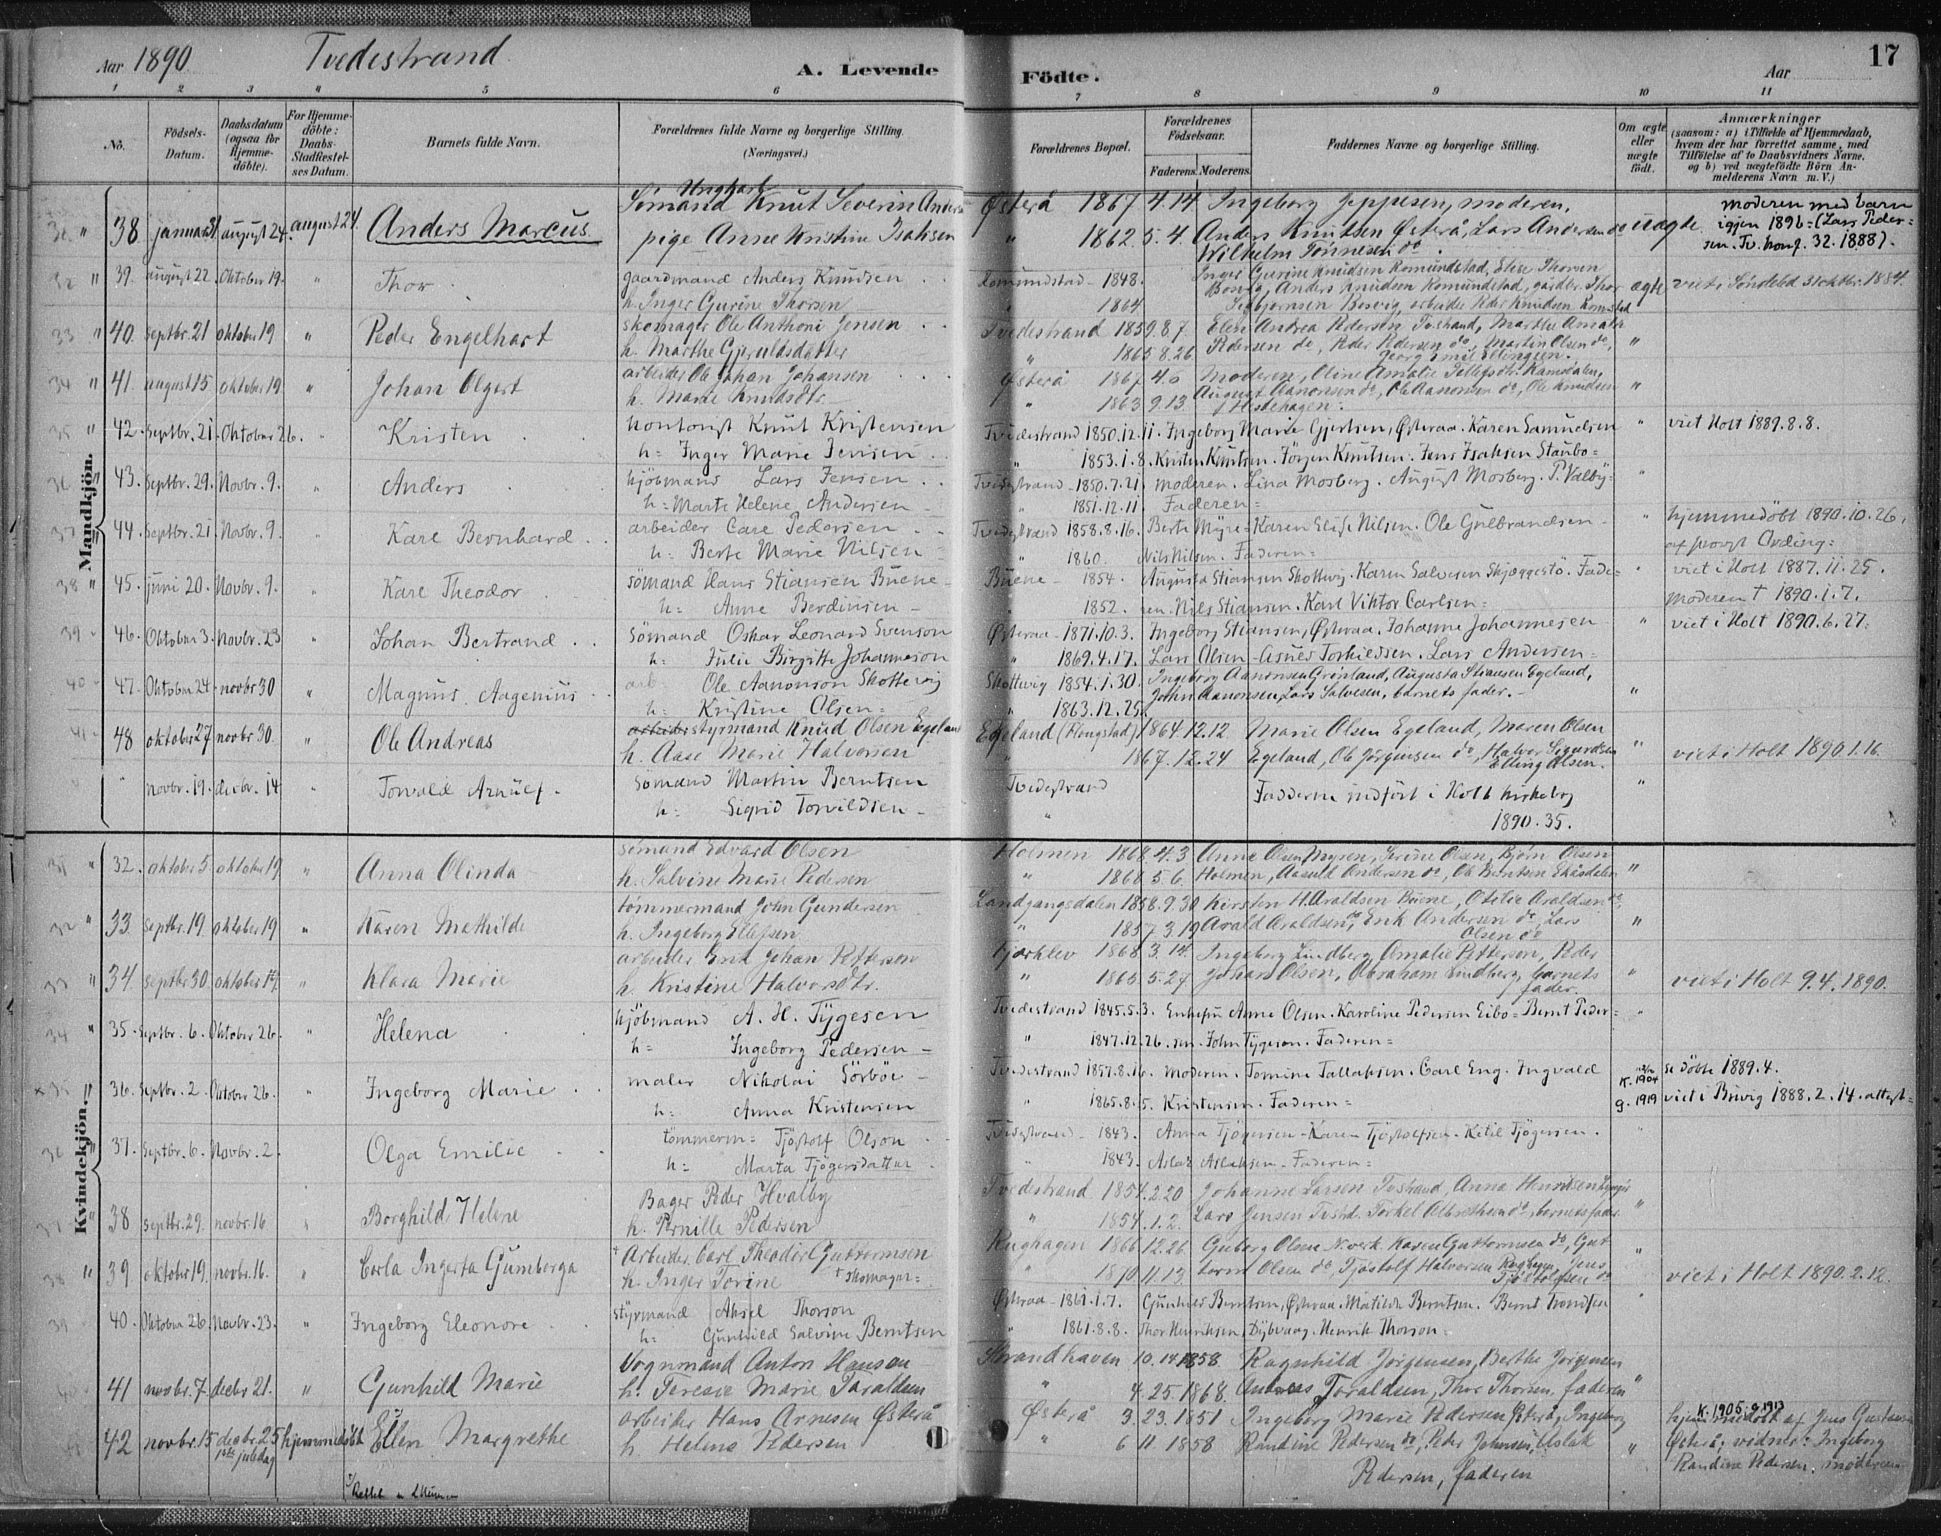 Aar 1890 Tvedestrand A. Levende Födte. Aar 17
1 2 3 4 5 6 7 8 9 10 11
No. Födsels-Datum. Daabsdatum (ogsaa for Hjemmedöbte). For Hjemmedöbte: Daabs-Stadfæstelses Datum. Barnets fulde Navn. Forældrenes fulde Navne og borgerlige Stilling. (Næringsvei.) Forældrenes Bopæl. Forældrenes Födselsaar. Faderens. Moderens. Faddernes Navne og borgerlige Stilling. Om ægte eller uægte födt. Anmærkninger (saasom: a) i Tilfælde af Hjemmedaab, hvem der har forrettet samme, med Tilföielse af to Daabsvidners Navne, og b) ved uægtefödte Börn Anmelderens Navn m. V.)
Mandkjön.
Ungkarl
38 januar 31 august 24. august 24. Anders Marcus Sömand Knut Severin Anders Østerå 1867 4.14 Ingeborg Jeppesen, moderen,
pige Anne Kristine Isaksen " 1862. 5. 4. Anders Knutsen Østerå, Lars Andersen do uægte
Wilhelm Tönnesen do
moderen med barn
igjen 1896 = (Lars Peder=
sen. Tv. konf. 32. 1888).
39. august 22. Oktober 19. Thor gaardmand Anders Knudsen Romundstad 1848. Inger Gurine Knudsen Romundstad, Elise Thorsen
h. Inger Gurine Thorsen " 1864 Bosvig, Anders Knudsen Romundstad, gårdbr. Thor ægte viet i Söndeled 31 oktbr. 1884.
40. septbr. 21 oktober 19 " Peder Engelhart skomager Ole Anthoni Jensen Tvedestrand 1859.8.7. Elen Andrea Pedersen Tvstrand, Marthe Amalie
h. Marthe Gjeruldsdatter " 1865.8.26 Pedersen do, Peder Pedersen do, Martin Olsen do, "
Georg Emil Ellingsen.
41. august 15. oktober 19 " Johan Olgert arbeider Ole Johan Johansen Østerå 1867 4.6 Moderen, Oline Amalie Tellefsdtr. Ramsdalen,
h. Marie Knudsdtr. " 1863 9.13. August Aanonsen do, Ole Aanonsen do, Ole Knudsen "
Hestehagen.
42. Septbr. 21. Oktober 26. Kristen kontorist Knut Kristensen Tvedestrand 1850.12.11. Ingeborg Marie Gjertsen, Østeraa. Karen Samuelsen " viet Holt 1889.8.8.
h= Inger Marie Jensen " 1853.1.8. Kristen Knutsen. Jörgen Knutsen. Jens Isaksen Staubo=
43. Septbr. 29. Novbr. 9. " Anders kjöbmand Lars Jensen Tvedestrand 1850.7.21. moderen. Lina Mosberg. August Mosberg. P. Valby= "
h= Marte Helene Andersen " 1851.12.11 Faderen=
44. Septbr. 21. Novbr. 9. " Karl Bernhard arbeider Carl Pedersen Tvedestrand 1858.8.16. Berte Myre= Karen Elise Nilsen. Ole Gulbrandsen " hjemmedöbt 1890.10.26,
h= Berte Marie Nilsen " 1860. Nils Nilsen. Faderen= af provst Ording=
45. juni 20. Novbr. 9. " Karl Theodor sömand Hans Stiansen Buene Buene 1854. Augusta Stiansen Skottevig. Karen Salvesen Skjæggestö. Fade= " viet i Holt 1887.11.25.
h= Anne Berdinsen " 1852. ren. Nils Stiansen. Karl Viktor Carlsen= moderen † 1890.1.7.
46. Oktober 3. Novbr. 23 " Johan Bertrand sömand Oskar Leonard Svenson Østeraa 1871.10.3. Ingeborg Stiansen, Østeraa. Johanne Johannesen " viet i Holt 1890.6.27.
h= Julie Birgitte Johanneson " 1869.4.17. Lars Olsen Asuld Torkildsen. Lars Andersen=
47. Oktober 24 novbr 30 " Magnus Aagenius arb. Ole Aanonson Skottevig Skottevig 1854.1.30. Ingeborg Aanonsen Grönland, Augusta Stiansen Egeland,
h= Kristine Olsen= " 1863.12.25. John Aanonsen, Lars Salvesen, barnets fader. "
48 oktober 27 novbr 30. " Ole Andreas arbeider styrmand Knud Olsen Egeland Egeland (Flougstad) 1864.12.12 Marie Olsen Egeland, Maren Olsen
h. Aase Marie Halvorsen " 1867.12.24 Egeland, Ole Jörgensen do, Halvor Sigurdsen " viet i Holt 1890.1.16.
Elling Olsen.
" novbr. 19. decbr. 14 " Torvald Arnulf sömand Martin Berntsen Tvedestrand Fadderne indfört i Holt kirkebog "
h= Sigrid Torvildsen " 1890.35.
Kvindekjön.
32. oktober 5 oktober 19 " Anna Olinda sömand Edvard Olsen Holmen 1868.4.3 Anne Olsen Myren, Serine Olsen, Björn Olsen
h. Salvine Marie Pedersen " 1868.5.6. Holmen, Aasult Andersen do, Ole Berntsen Skåsdalen "
33. septbr. 19. oktober 19 " Karen Mathilde tömmermand John Gundersen Landgangsdalen 1858.9.30 Kirsten H. Araldsen Buene, Otelie Araldsen do,
h. Ingeborg Ellefsen " 1857.3.19 Arald Araldsen do, Erik Andersen do, Lars "
Olsen do
34. septbr 30 oktober 19. " Klara Marie arbeider Erik Johan Pettersen Bjørklev 1868 3.14. Ingeborg Lindberg, Amalie Pettersen, Peder
h. Kristine Halvorsdtr. " 1865 5.27. Johan Olsen, Abraham Lindberg, barnets " viet i Holt 9.4.1890.
fader.
35. Septbr. 6. Oktober 26. " Helena kjöbmand A. H. Tygesen Tvedestrand 1845.5.3. Enkefru Anne Olsen. Karoline Pedersen Eibo= Bernt Peder= "
h= Ingeborg Pedersen " 1847.12.26. sen. John Tygeson. Faderen=
36. Septbr. 2. Oktober 26. " Ingeborg Marie maler Nikolai Sörböe Tvedestrand 1857.8.16. Moderen. Tomine Tallaksen. Carl Eng. Ingvald K. 1904 se döbte 1889.4.
h= Anna Kristensen " 1865.8.5. Kristensen. Faderen= g. 1919 viet i Brevig 1888.2.14. attest=
37. Septbr. 6. Novbr. 2. Olga Emilie tömmerm= Tjöstolf Olson Tvedestrand 1843. Anna Tjögersen. Karen Tjöstolfsen. Ketil Tjögersen.
h= Marta Tjögersdatter " 1843. Aslak Aslaksen. Faderen=
38 septbr. 29. novbr. 16 Borghild Helene Bager Peder Hvalby Tvedestrand 1854.2.20 Johanne Larsen Tvstrand, Anna Henriksen
h. Pernille Pedersen " 1854.1.2. Lars Jensen Tvstd. Torkel Albrethsen do, barnets fader "
39 oktober 19. novbr. 16. " Carla Ingerta Gumborga Arbeider Carl Theodor Guttormsen Rughagen 1866 12.26 Guborg Olsen N.verk. Karen Guttormsen do, Gut
h. Inger Torine † Skomager= " 1870.11.13. torm Olsen do, Tjöstolf Halvorsen Rughagen, Jens " viet i Holt 1890.2.12.
Tjöstolfsen do
40. Oktober 26 Novbr. 23. " Ingeborg Eleonore styrmand Aksel Thorson Østeraa 1861.1.7. Gunhild Berntsen, Østeraa. Matilde Berntsen. Bernt Trondsen "
h= Gunhild Salvine Berntsen " 1861.8.8. Thor Henriksen, Dybvaag. Henrik Thorson=
41 novbr. 7. decbr 21. " Gunhild Marie Vognmand Anton Hansen Strandhaven 10.14.1858 Ragnhild Jörgensen, Berthe Jörgensen
h. Teresie Marie Taraldsen " 4.25.1868. Andreas Toraldsen, Thor Thorsen, faderen "
42 novbr. 15 decbr. 25 hjemmedöbt Ellen Margrethe arbeider Hans Arnesen Østerå Østerå 3.23.1851 Ingeborg Marie Pedersen Østerå, Ingeborg K. 1905. g. 1913
1ste juledag h. Helene Pedersen " 6 11 1858 Randine Pedersen do, Peder Johnsen, Aslak "
Pedersen, faderen
hjemmedöbt af Jens Gustavsen
Østerå, vidner: Ingeborg
Randine Pedersen, moderen